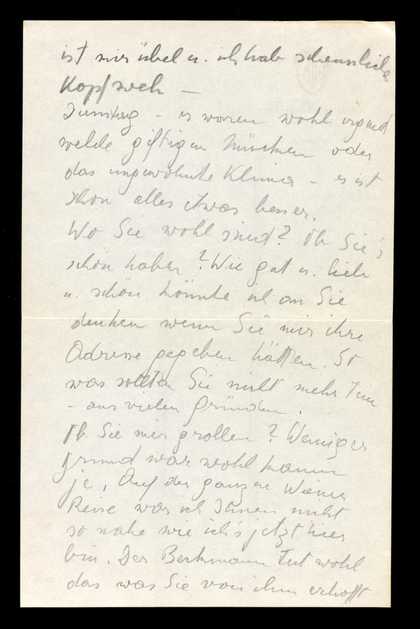 ist mir übel u. ich hab scheussliche
Kopfweh –
Dienstag – es waren wohl irgend
welche giftigen Muscheln oder
das ungewohnte Klima – es ist
schon alles etwas besser.
Wo Sie wohl sind? Ob Sie's
schön haben? Wie gut u. lieb
u. schön könnte ich an Sie
denken wenn Sie mir ihre
Adresse gegeben hätten. So
was sollten Sie nicht mehr tun
– aus vielen Gründen.
Ob Sie mir grollen? Weniger
Grund war wohl kaum
je, Auf der ganzen Wiener
Reise war ich Ihnen nicht
so nahe wie ich's jetzt hier
bin. Der Beckmann tut wohl
das was Sie von ihm erhofft